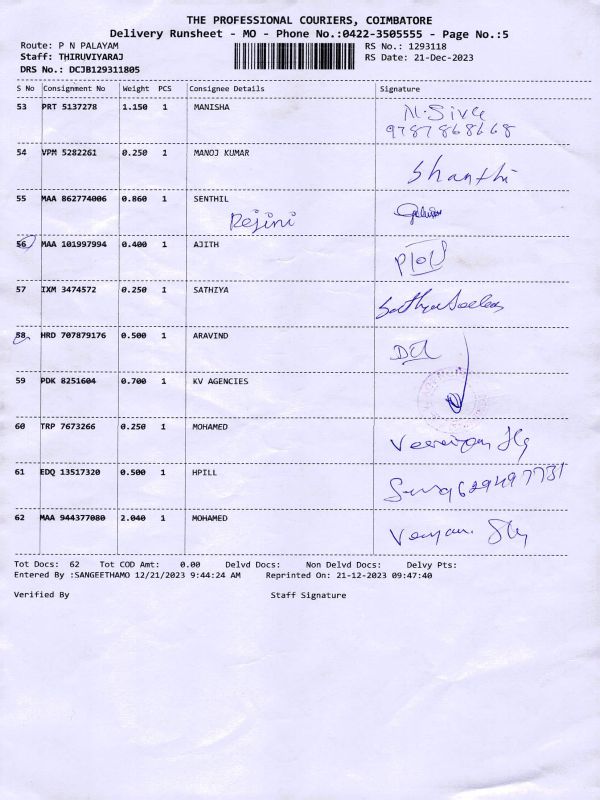 THE PROFESSIONAL COURIERS, COIMBATORE
Delivery Runsheet - MO - Phone No.:0422-3505555 - Page No.:5
Route: P N PALAYAM RS No.: 1293118
Staff: THIRUVIYARAJ RS Date: 21-Dec-2023
DRS No.: DCJB129311805
S No Consignment No Weight PCS Consignee Details Signature
53 PRT 5137278 1.150 1 MANISHA N.Siva
9787868668
54 VPM 5282261 0.250 1 MANOJ KUMAR Shanthi
55 MAA 862774006 0.860 1 SENTHIL
Rejini
56 MAA 101997994 0.400 1 AJITH
57 IXM 3474572 0.250 1 SATHIYA
58 HRD 707879176 0.500 1 ARAVIND
59 PDK 8251604 0.700 1 KV AGENCIES
60 TRP 7673266 0.250 1 MOHAMED
61 EDQ 13517320 0.500 1 HPILL
62 MAA 944377080 2.040 1 MOHAMED
Tot Docs: 62 Tot COD Amt: 0.00 Delvd Docs: Non Delvd Docs: Delvy Pts:
Entered By :SANGEETHAMO 12/21/2023 9:44:24 AM Reprinted On: 21-12-2023 09:47:40
Verified By Staff Signature